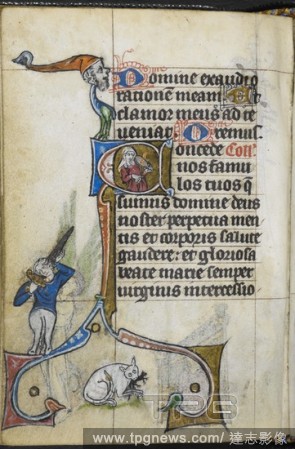 Domine exaudi o
rationē meam Et
clamor meus ad te
ueniat. Oremus.
Concede Coll'
nos famu
los tuos q̄s
sumus domine deus
noster perpetua men
tis et corporis salute
gaudere: et gloriosa
beate marie semper
uirginis intercessio
TPG
www.tpgnews.com / 達志影像